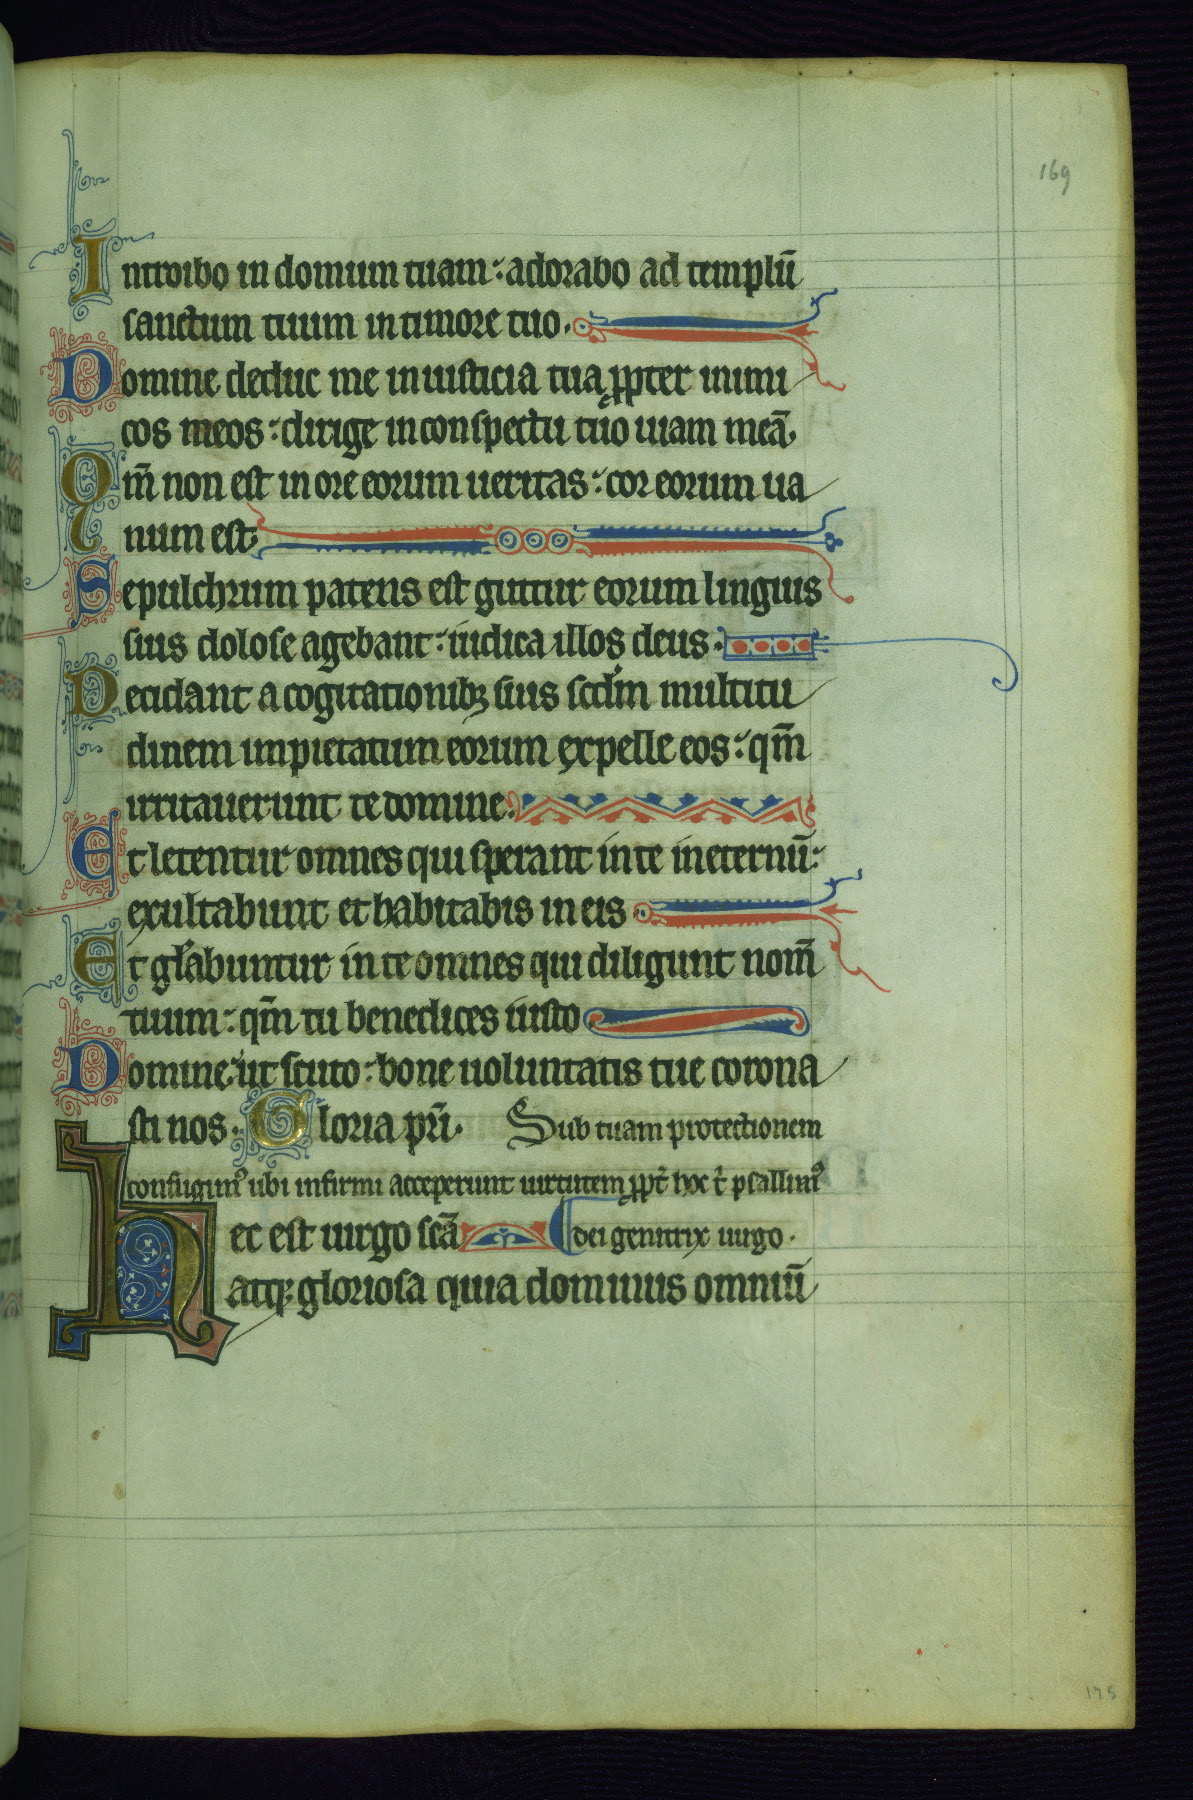 169
Introibo in domum tuam: adorabo ad templū
sanctum tuum in timore tuo.
Domine deduc me in iusticia tua ꝓpter inimi
cos meos: dirige in conspectu tuo uiam meā.
Qm̄ non est in ore eorum ueritas: cor eorum ua
num est.
Sepulchrum patens est guttur eorum linguis
suis dolose agebant: iudica illos deus.
Decidant a cogitationibꝫ suis scd̓m multitu
dinem impietatum eorum expelle eos: qm̄
irritauerunt te domine.
Et letentur omnes qui sperant in te in eternū:
exultabunt et habitabis in eis.
Et gl̓abuntur in te omnes qui diligunt nom̄
tuum: qm̄ tu benedices iusto
Domine ut scuto: bone uoluntatis tue corona
sti nos. Gloria pr̄i. Sub tuam protectionem
confugimꝰ ubi infirmi acceperunt uirtutem ꝓpt̄ hoc t̄ psallimꝰ
hec est uirgo scā dei genitrix uirgo.
atqꝫ gloriosa quia dominus omniū
175